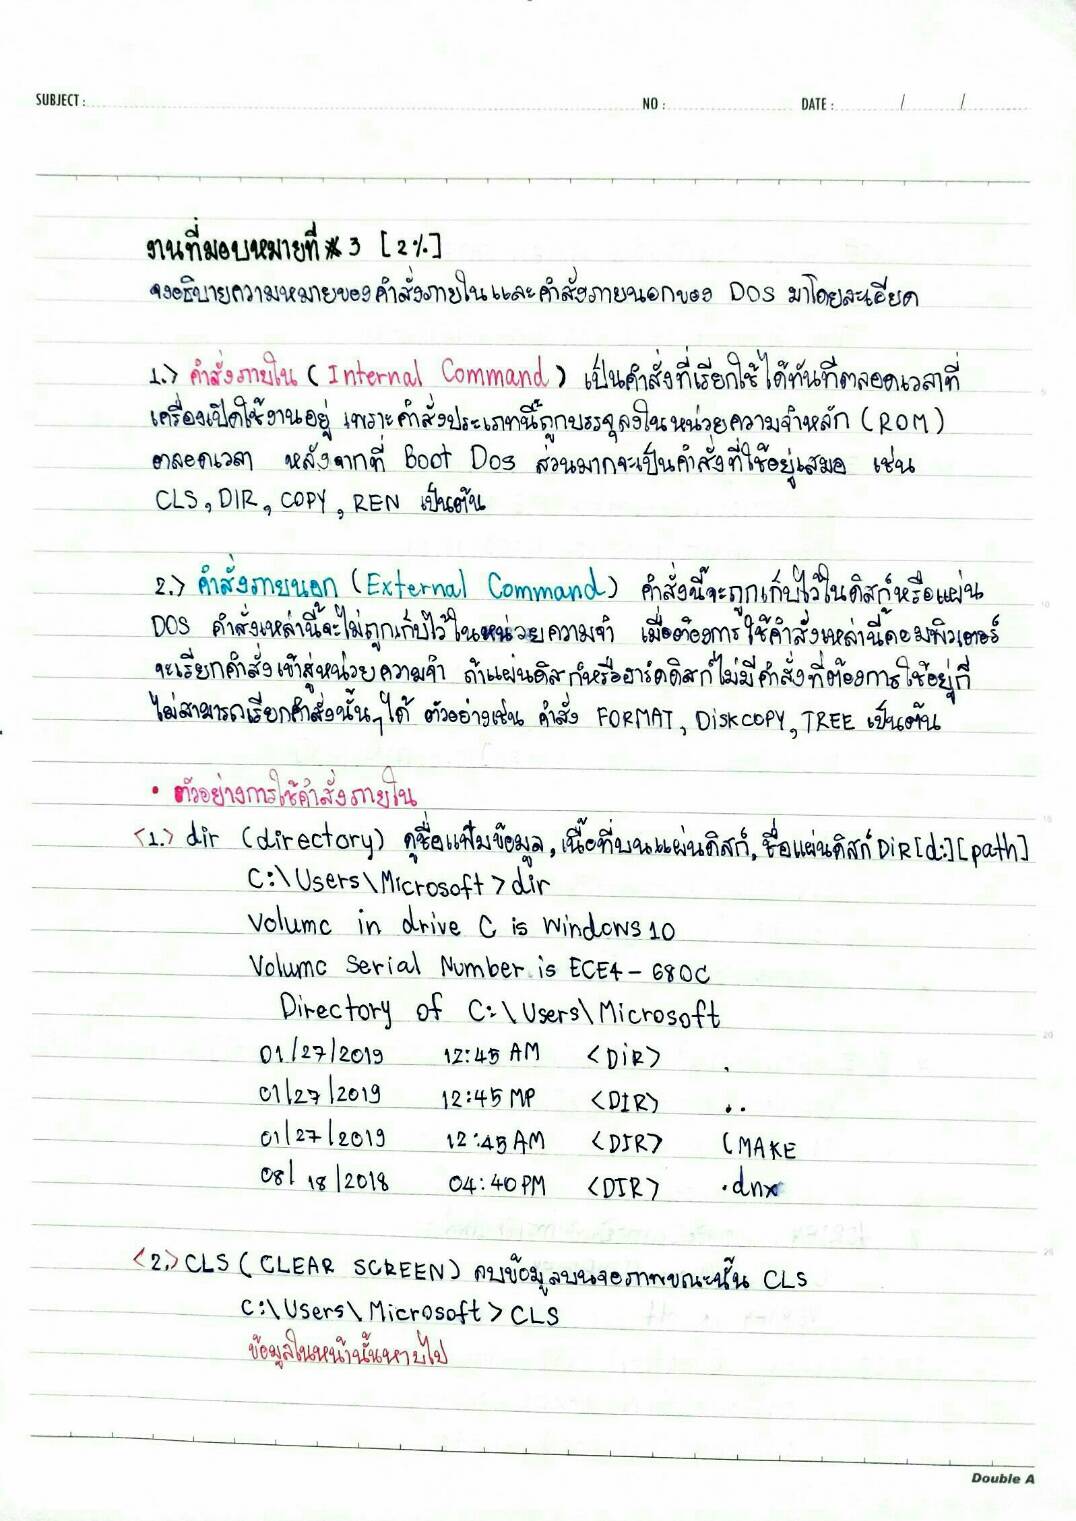 SUBJECT : NO : DATE : / /
งานที่มอบหมายที่ 3 [2%]
จงอธิบายความหมายของคำสั่งภายในและคำสั่งภายนอกของ DOS มาโดยละเอียด
1.> คำสั่งภายใน (Internal Command) เป็นคำสั่งที่เรียกใช้ได้ทันทีตลอดเวลาที่
เครื่องเปิดใช้งานอยู่ เพราะคำสั่งประเภทนี้ถูกบรรจุลงในหน่วยความจำหลัก (ROM)
ตลอดเวลา หลังจากที่ Boot Dos ส่วนมากจะเป็นคำสั่งที่ใช้อยู่เสมอ เช่น
CLS, DIR, COPY, REN เป็นต้น
2.> คำสั่งภายนอก (External Command) คำสั่งนี้จะถูกเก็บไว้ในดิสก์หรือแผ่น
DOS คำสั่งเหล่านี้จะไม่ถูกเก็บไว้ในหน่วยความจำ เมื่อต้องการใช้คำสั่งเหล่านี้คอมพิวเตอร์
จะเรียกคำสั่งเข้าสู่หน่วยความจำ ถ้าแผ่นดิสก์หรือฮาร์ดดิสก์ไม่มีคำสั่งที่ต้องการใช้อยู่ก็
ไม่สามารถเรียกคำสั่งนั้นๆได้ ตัวอย่างเช่น คำสั่ง FORMAT, DISKCOPY, TREE เป็นต้น
• ตัวอย่างการใช้คำสั่งภายใน
<1.> dir (directory) ดูชื่อแฟ้มข้อมูล, เนื้อที่บนแผ่นดิสก์, ชื่อแผ่นดิสก์ DIR[d:][path]
C:\Users\Microsoft>dir
Volume in drive C is Windows 10
Volume Serial Number is ECE4-680C
Directory of C:\Users\Microsoft
01/27/2019 12:45 AM <DIR> .
01/27/2019 12:45 MP <DIR> ..
01/27/2019 12:45 AM <DIR> CMAKE
08/18/2018 04:40 PM <DIR> .dnx
<2.> CLS (CLEAR SCREEN) ลบข้อมูลบนจอภาพขณะนั้น CLS
C:\Users\Microsoft>CLS
ข้อมูลในหน้านั้นหายไป
Double A